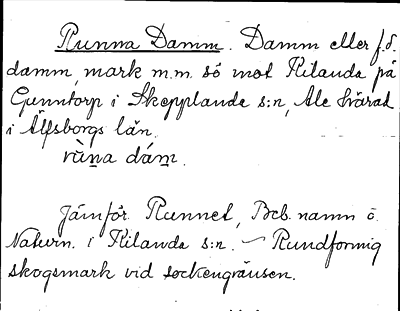 Runna Damm. Damm eller f.d.
damm, mark m.m. sö mot Kilanda på
Gunntorp i Skepplanda s:n, Ale härad
i Älfsborgs län.
rùna dám.
Jämför Runnet, Beb. namn o.
Naturn. i Kilanda s:n. — Rundformig
skogsmark vid sockengränsen.